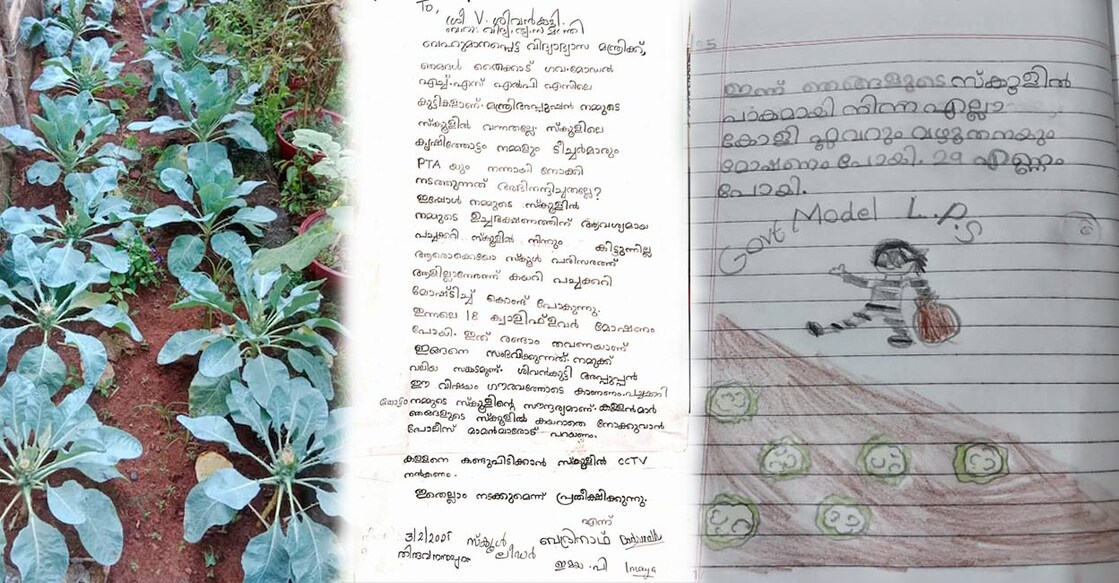 To,
ശ്രീ V. ശിവൻകുട്ടി.
ബഹുമാനപ്പെട്ട വിദ്യാഭ്യാസ മന്ത്രിക്ക്,
ഞങ്ങൾ തൈക്കാട് ഗവ.മോഡൽ
എച്ച്.എസ് എൽപി എസിലെ
കുട്ടികളാണ്. മന്ത്രിഅപ്പൂപ്പൻ നമ്മുടെ
സ്കൂളിൽ വന്നതല്ലേ. സ്കൂളിലെ
കൃഷിത്തോട്ടം നമ്മളും ടീച്ചർമാരും
PTA യും നന്നായി നോക്കി
നടത്തുന്നത് അഭിനന്ദിച്ചതല്ലേ?
ഇപ്പോൾ നമ്മുടെ സ്കൂളിൽ
നമ്മുടെ ഉച്ചഭക്ഷണത്തിന് ആവശ്യമായ
പച്ചക്കറി സ്കൂളിൽ നിന്നും കിട്ടുന്നില്ല
ആരൊക്കെയോ സ്കൂൾ പരിസരത്ത്
ആളില്ലാനേരത്ത് കയറി പച്ചക്കറി
മോഷ്ടിച്ച് കൊണ്ട് പോകുന്നു.
ഇന്നലെ 18 ക്വാളിഫ്ളവർ മോഷണം
പോയി. ഇത് രണ്ടാം തവണയാണ്
ഇങ്ങനെ സംഭവിക്കുന്നത്. നമുക്ക്
വലിയ സങ്കടമുണ്ട്. ശിവൻകുട്ടി അപ്പൂപ്പൻ
ഈ വിഷയം ഗൗരവത്തോടെ കാണണം. പച്ചക്കറി
തോട്ടം നമ്മുടെ സ്കൂളിന്റെ സൗന്ദര്യമാണ്. കള്ളൻമാർ
ഞങ്ങളുടെ സ്കൂളിൽ കയറാതെ നോക്കുവാൻ
പോലീസ് മാമൻമാരോട് പറയണം.
കള്ളനെ കണ്ടുപിടിക്കാൻ സ്കൂളിൽ CCTV
നൽകണം.
ഇതെല്ലാം നടക്കുമെന്ന് പ്രതീക്ഷിക്കുന്നു.
എന്ന്
3/2/2025 സ്കൂൾ ബദ്രിനാഥ്
തിരുവനന്തപുരം ലീഡർ ഇമയ .പി Imaya
ഇന്ന് ഞങ്ങളുടെ സ്കൂളിൽ
പാകമായി നിന്ന എല്ലാ
കോളി ഫ്ലവറും വഴുതനയും
മോഷണം പോയി. 29 എണ്ണം
പോയി.
Govt Model L.P.S